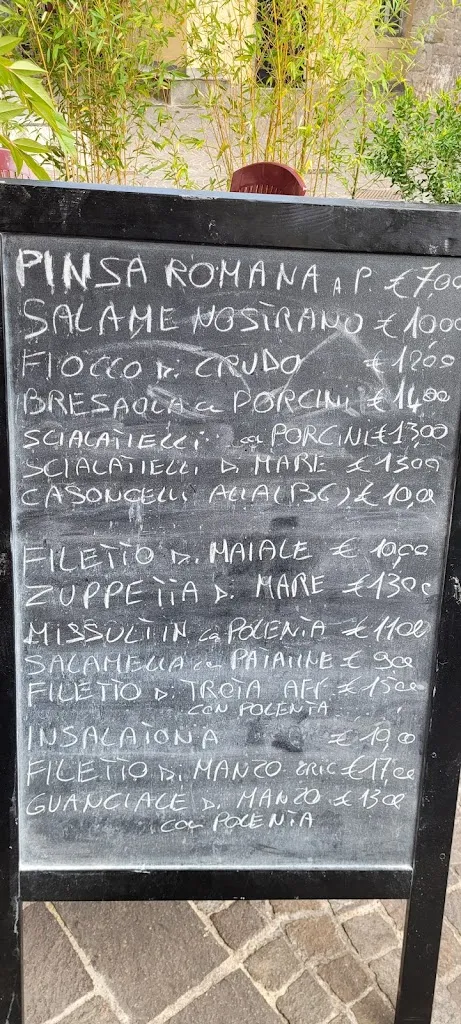 PINSA ROMANA A P. € 7,00
SALAME NOSTRANO € 10,00
FIOCCO Di CRUDO € 12,00
BRESAOLA co PORCINI € 14,00
SCIALATIELLI co PORCINI € 13,00
SCIALATIELLI Di MARE € 13,00
CASONCELLI ALLA (BG) € 10,00
FILETTO Di MAIALE € 10,00
ZUPPETTA Di MARE € 13,00
MISSULTIN co POLENTA € 11,00
SALAMELLA co PATATINE € 9,00
FILETTO Di TROTA AFF. € 15,00
CON POLENTA
INSALATONA € 10,00
FILETTO Di MANZO GRIG € 17,00
GUANCIALE Di MANZO € 13,00
CON POLENTA